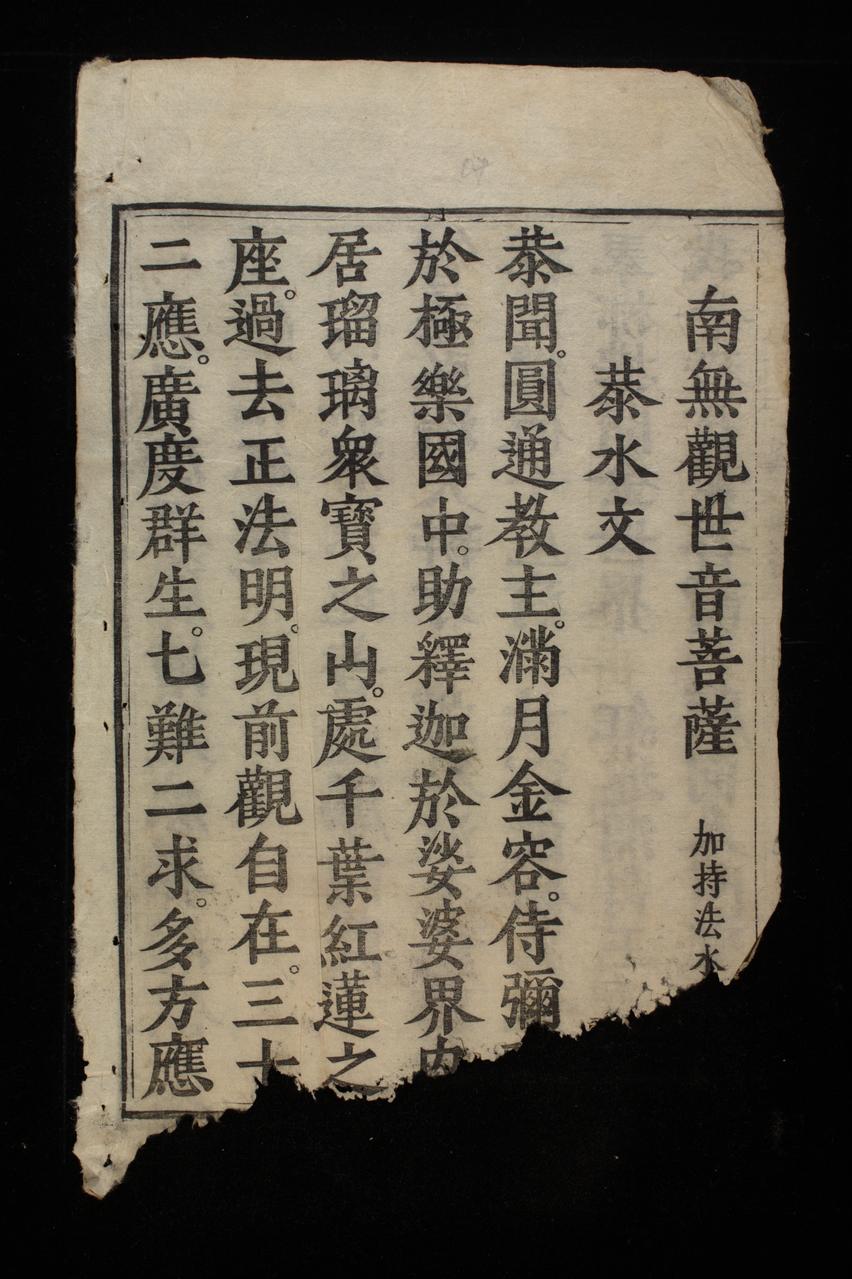 南無觀世音菩薩 加持法水
㳟水文
㳟聞。圓通教主。滿月金容。侍彌
於極樂國中。助釋迦於娑婆界内
居瑠璃衆寶之山。處千葉紅蓮之
座。過去正法明。現前觀自在。三十
二應。廣度群生。七難二求。多方應